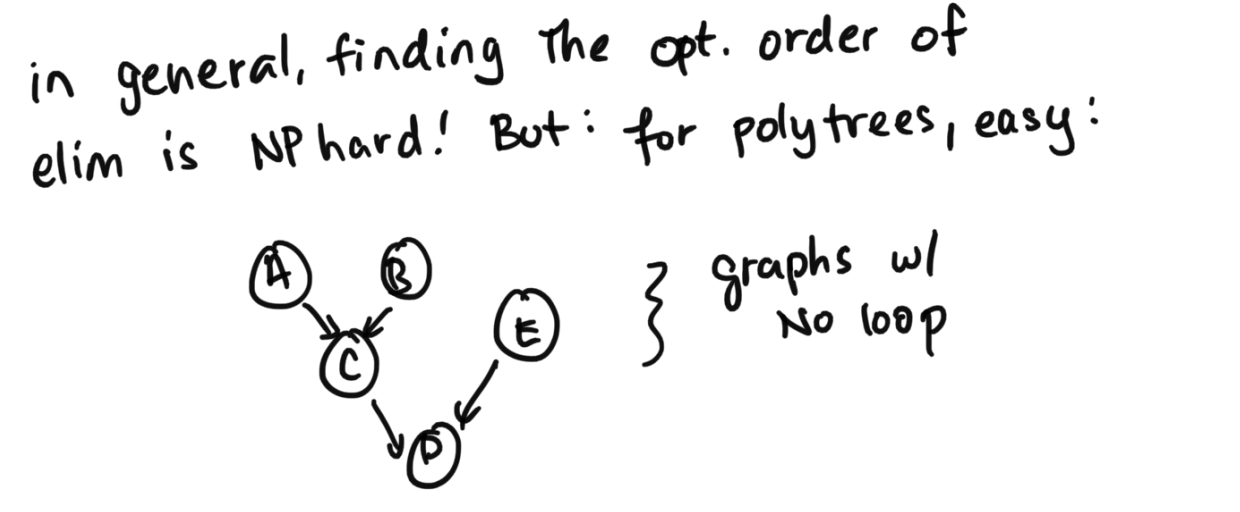 in general, finding the opt. order of
elim is NP hard! But: for polytrees, easy:
A B
E
C
D
graphs w/
No loop